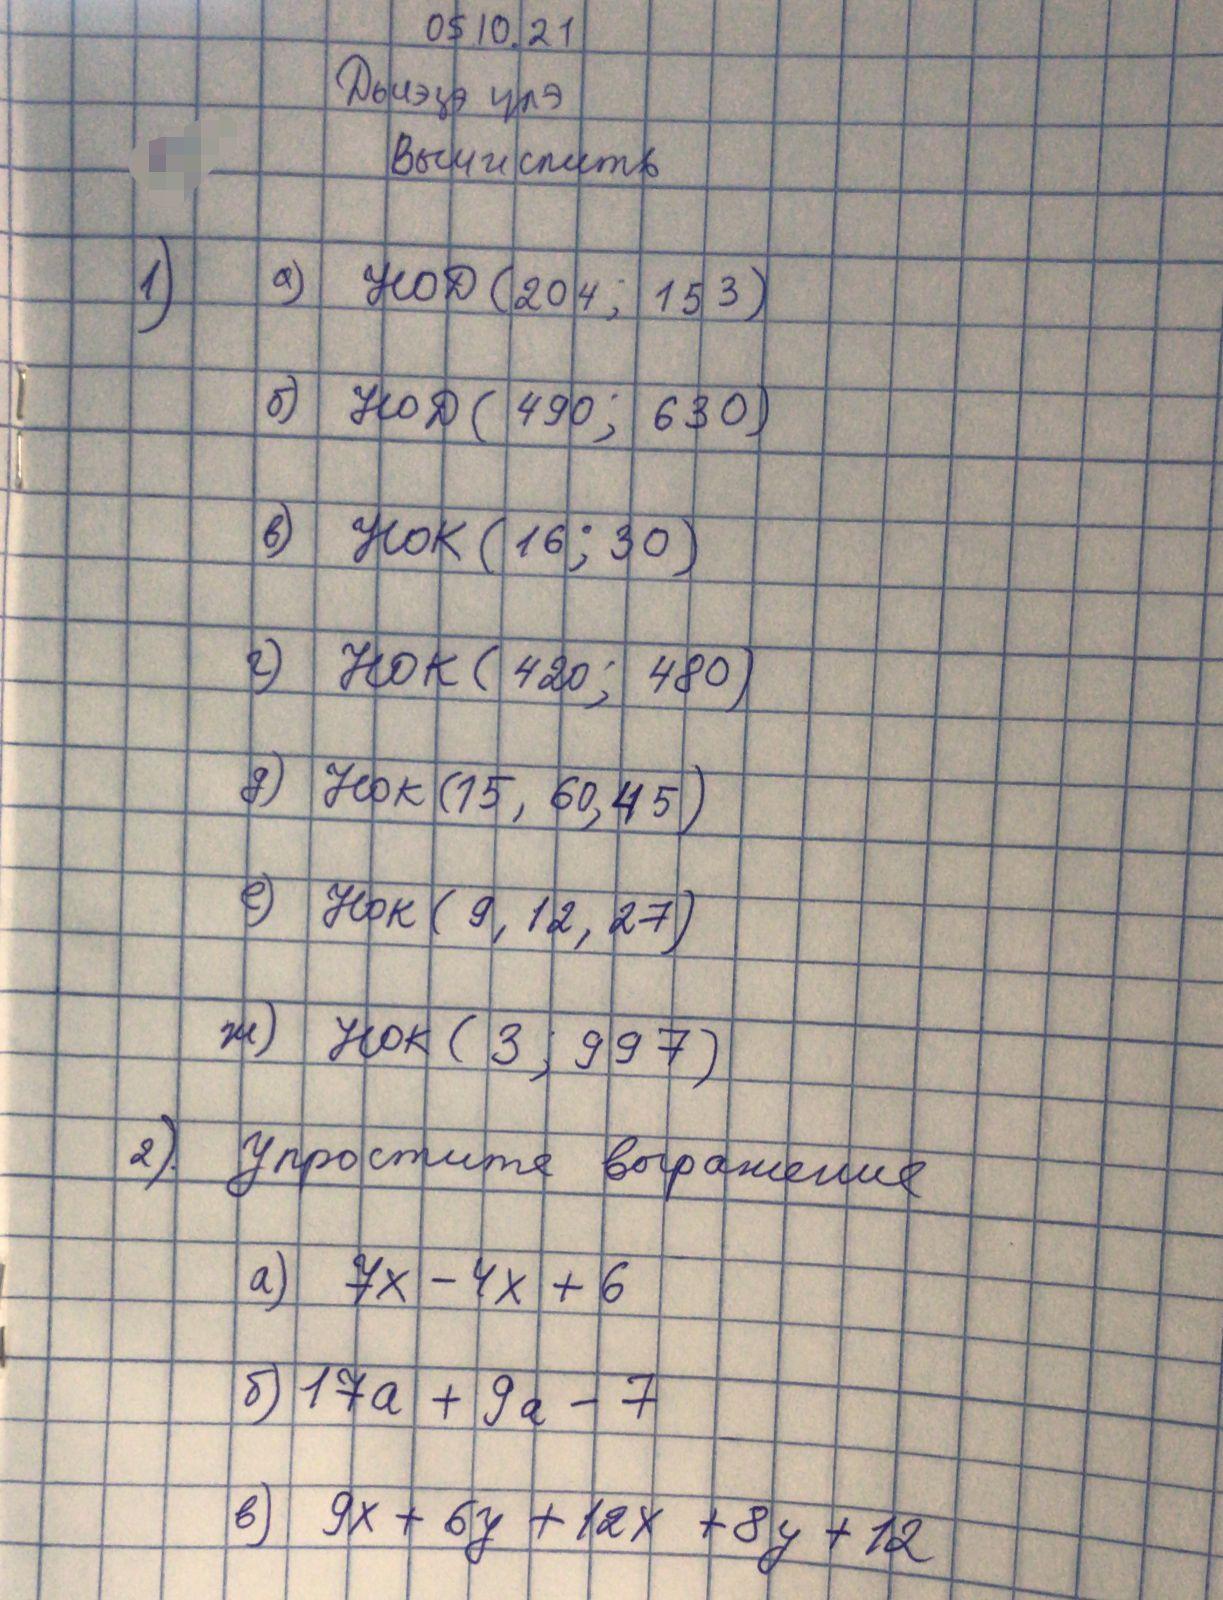 05 10.21
Дыгэгэ улэ
Вычислить
1) а) НОД (204; 153)
б) НОД (490; 630)
в) НОК (16; 30)
г) НОК (420; 480)
д) Нок (15, 60, 45)
е) Нок (9, 12, 27)
ж) Нок (3; 997)
2). Упростите выражение
а) 7x - 4x + 6
б) 17a + 9a - 7
в) 9x + 6y + 12x + 8y + 12